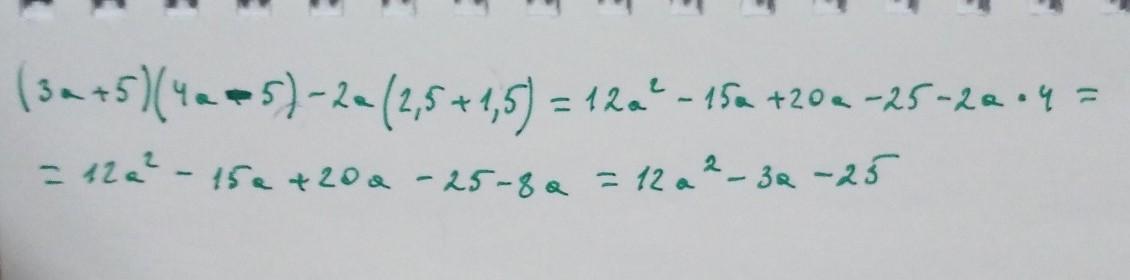 (3a+5)(4a-5)-2a(2,5+1,5)=12a²-15a+20a-25-2a·4=
=12a²-15a+20a-25-8a=12a²-3a-25